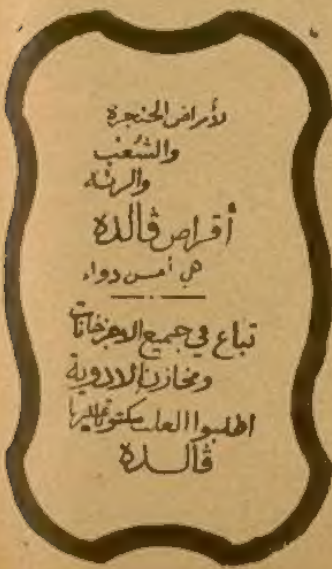 لأمراض الحنجرة
والشعب
والرئه
أقراص ڤالده
هي أحسن دواء
تباع في جميع الاجزخانات
ومخازن الادوية
اطلبوا العلب مكتوبا عليها
ڤالده